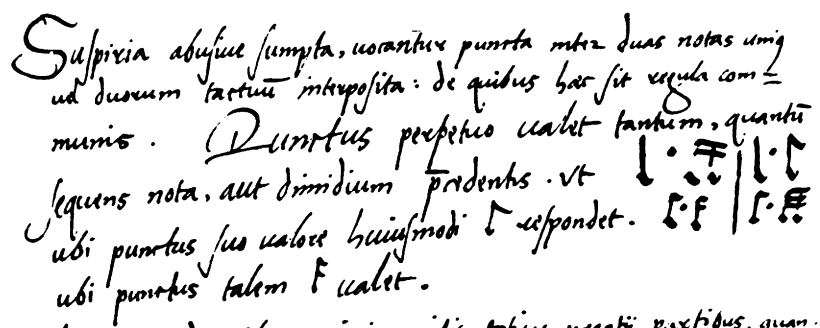 Suspiria abusiue sumpta, uocantur puncta inter duas notas unius
uel duorum tactuũ interposita: de quibus hæc sit regula com=
munis. Punctus perpetuo ualet tantum, quantũ
sequens nota, aut dimidium p̃cedentis. Vt
ubi punctus suo ualore huiusmodi respondet.
ubi punctus talem ualet.